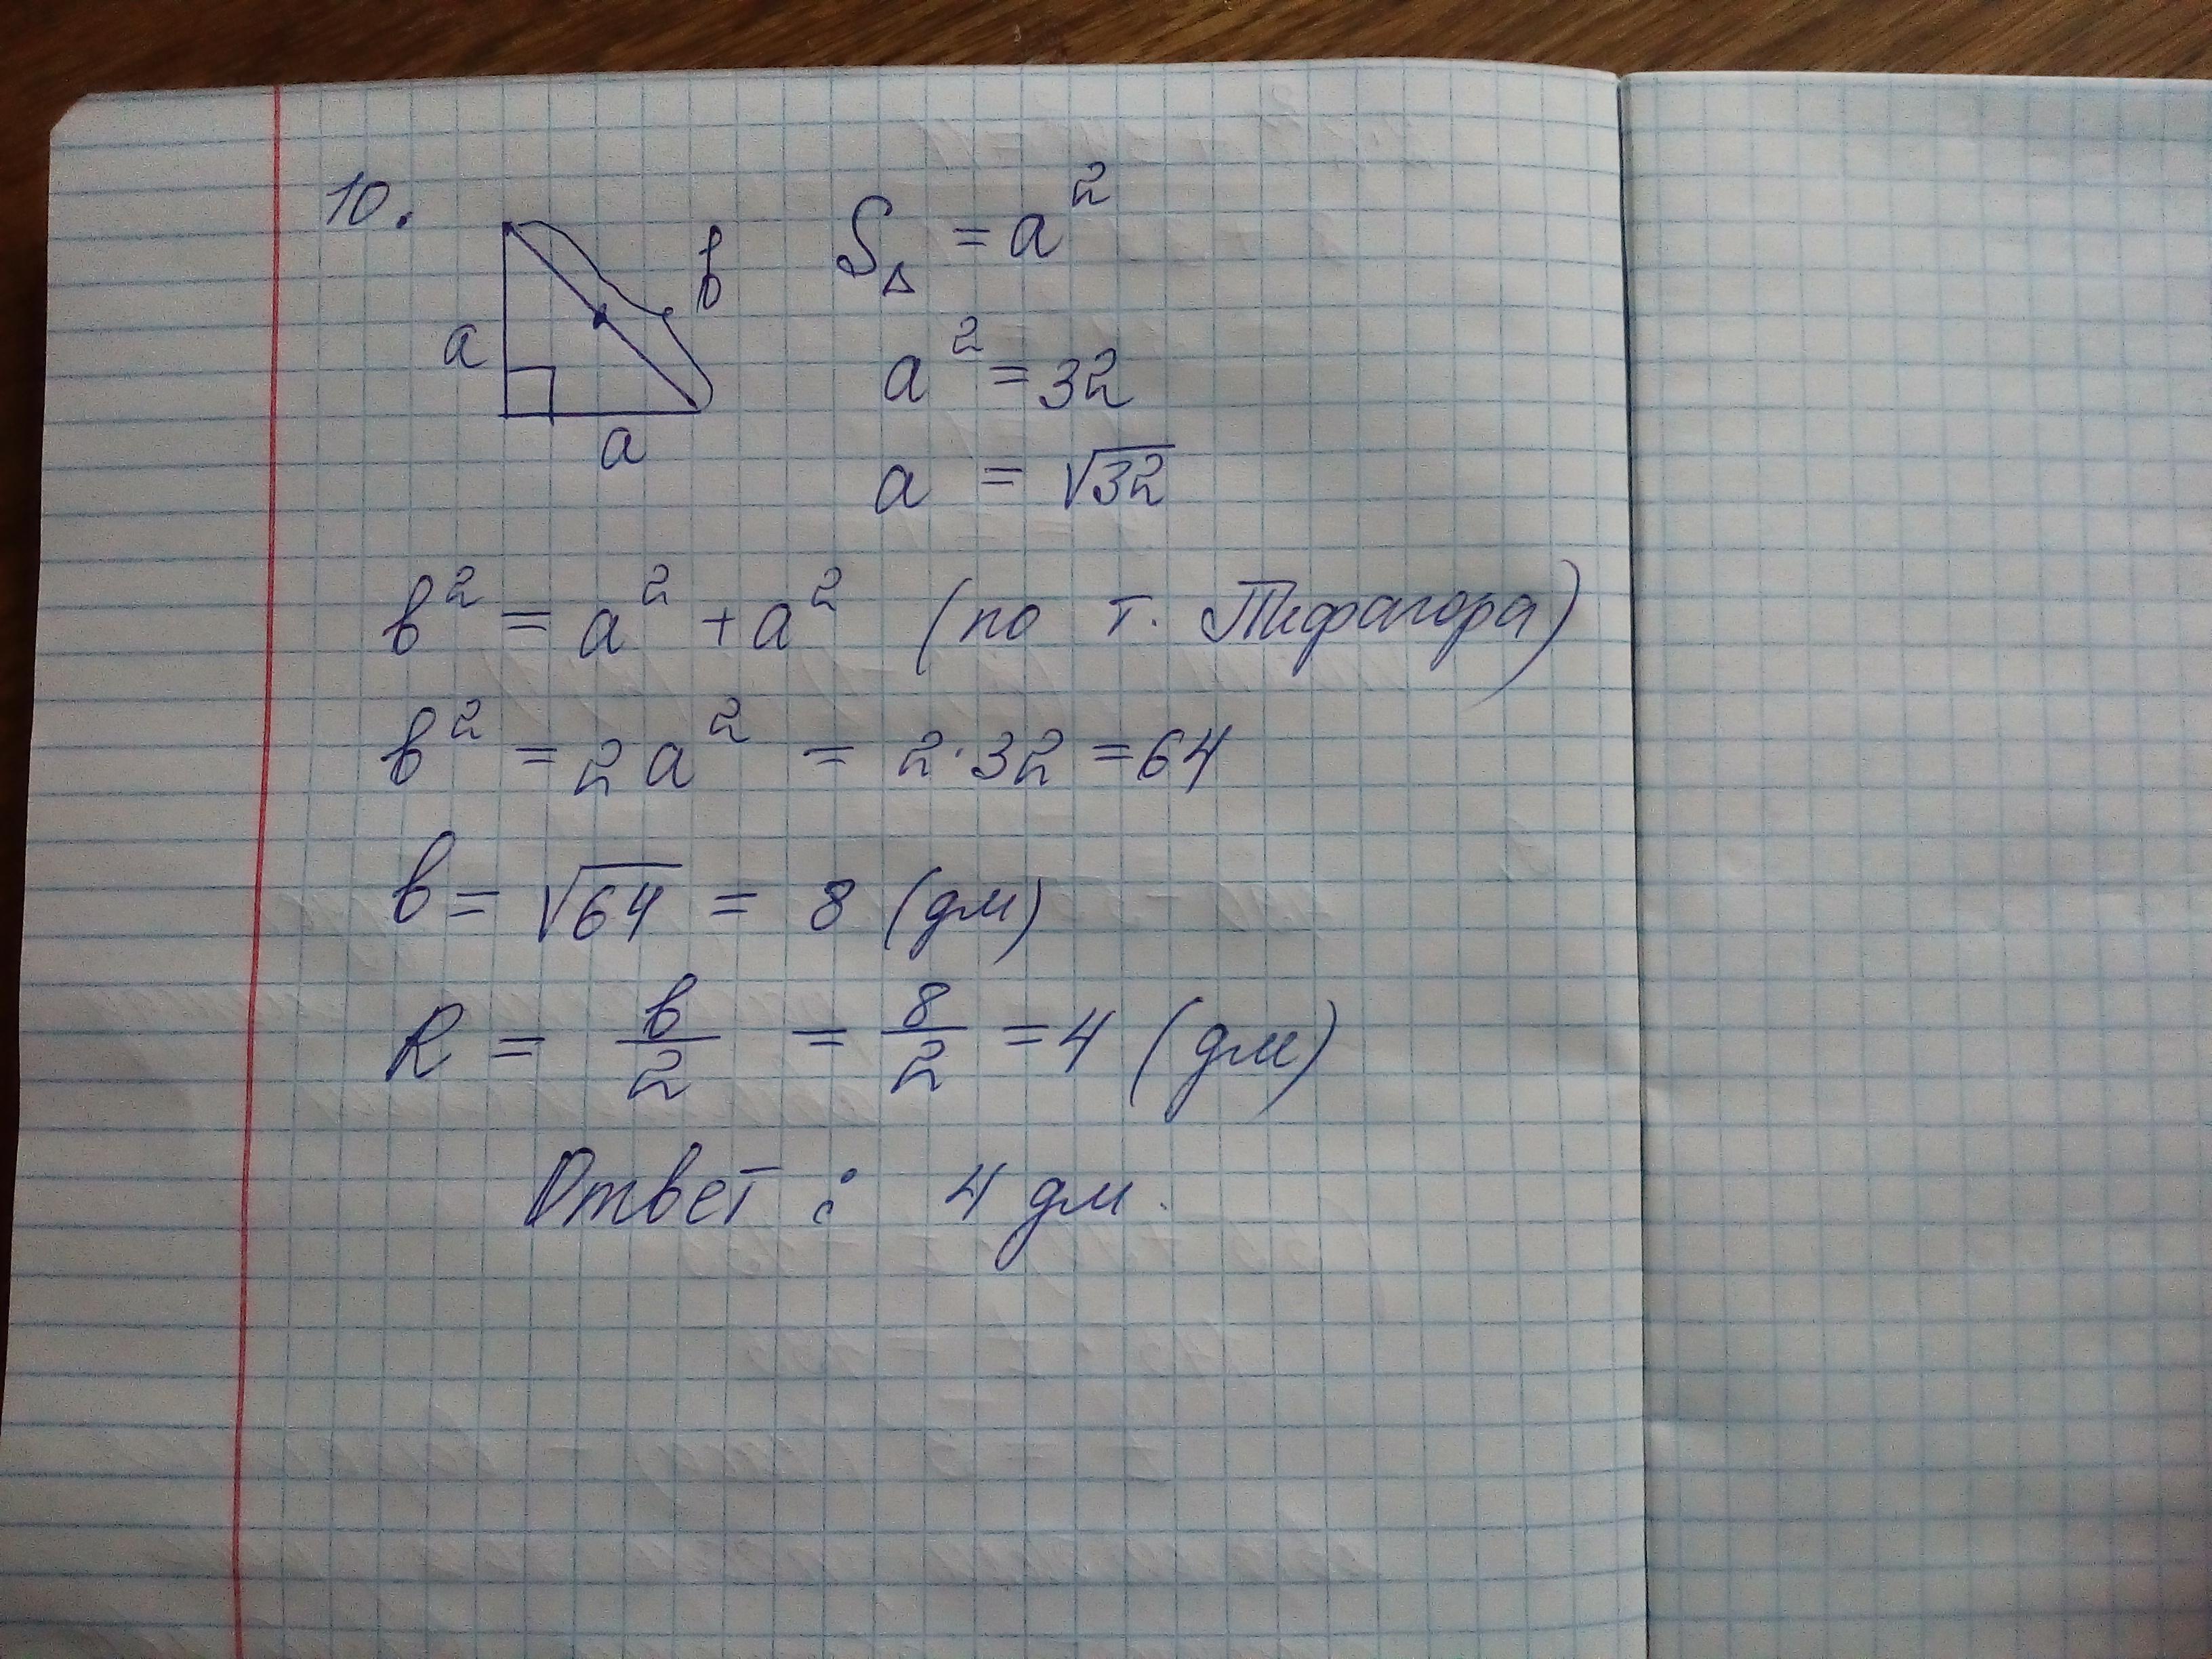 10.
a
a
в
S△ = a²
a² = 32
a = √32
в² = a² + a² (по т. Пифагора)
в² = 2a² = 2·32 = 64
в = √64 = 8 (дм)
R = в/2 = 8/2 = 4 (дм)
Ответ: 4 дм.